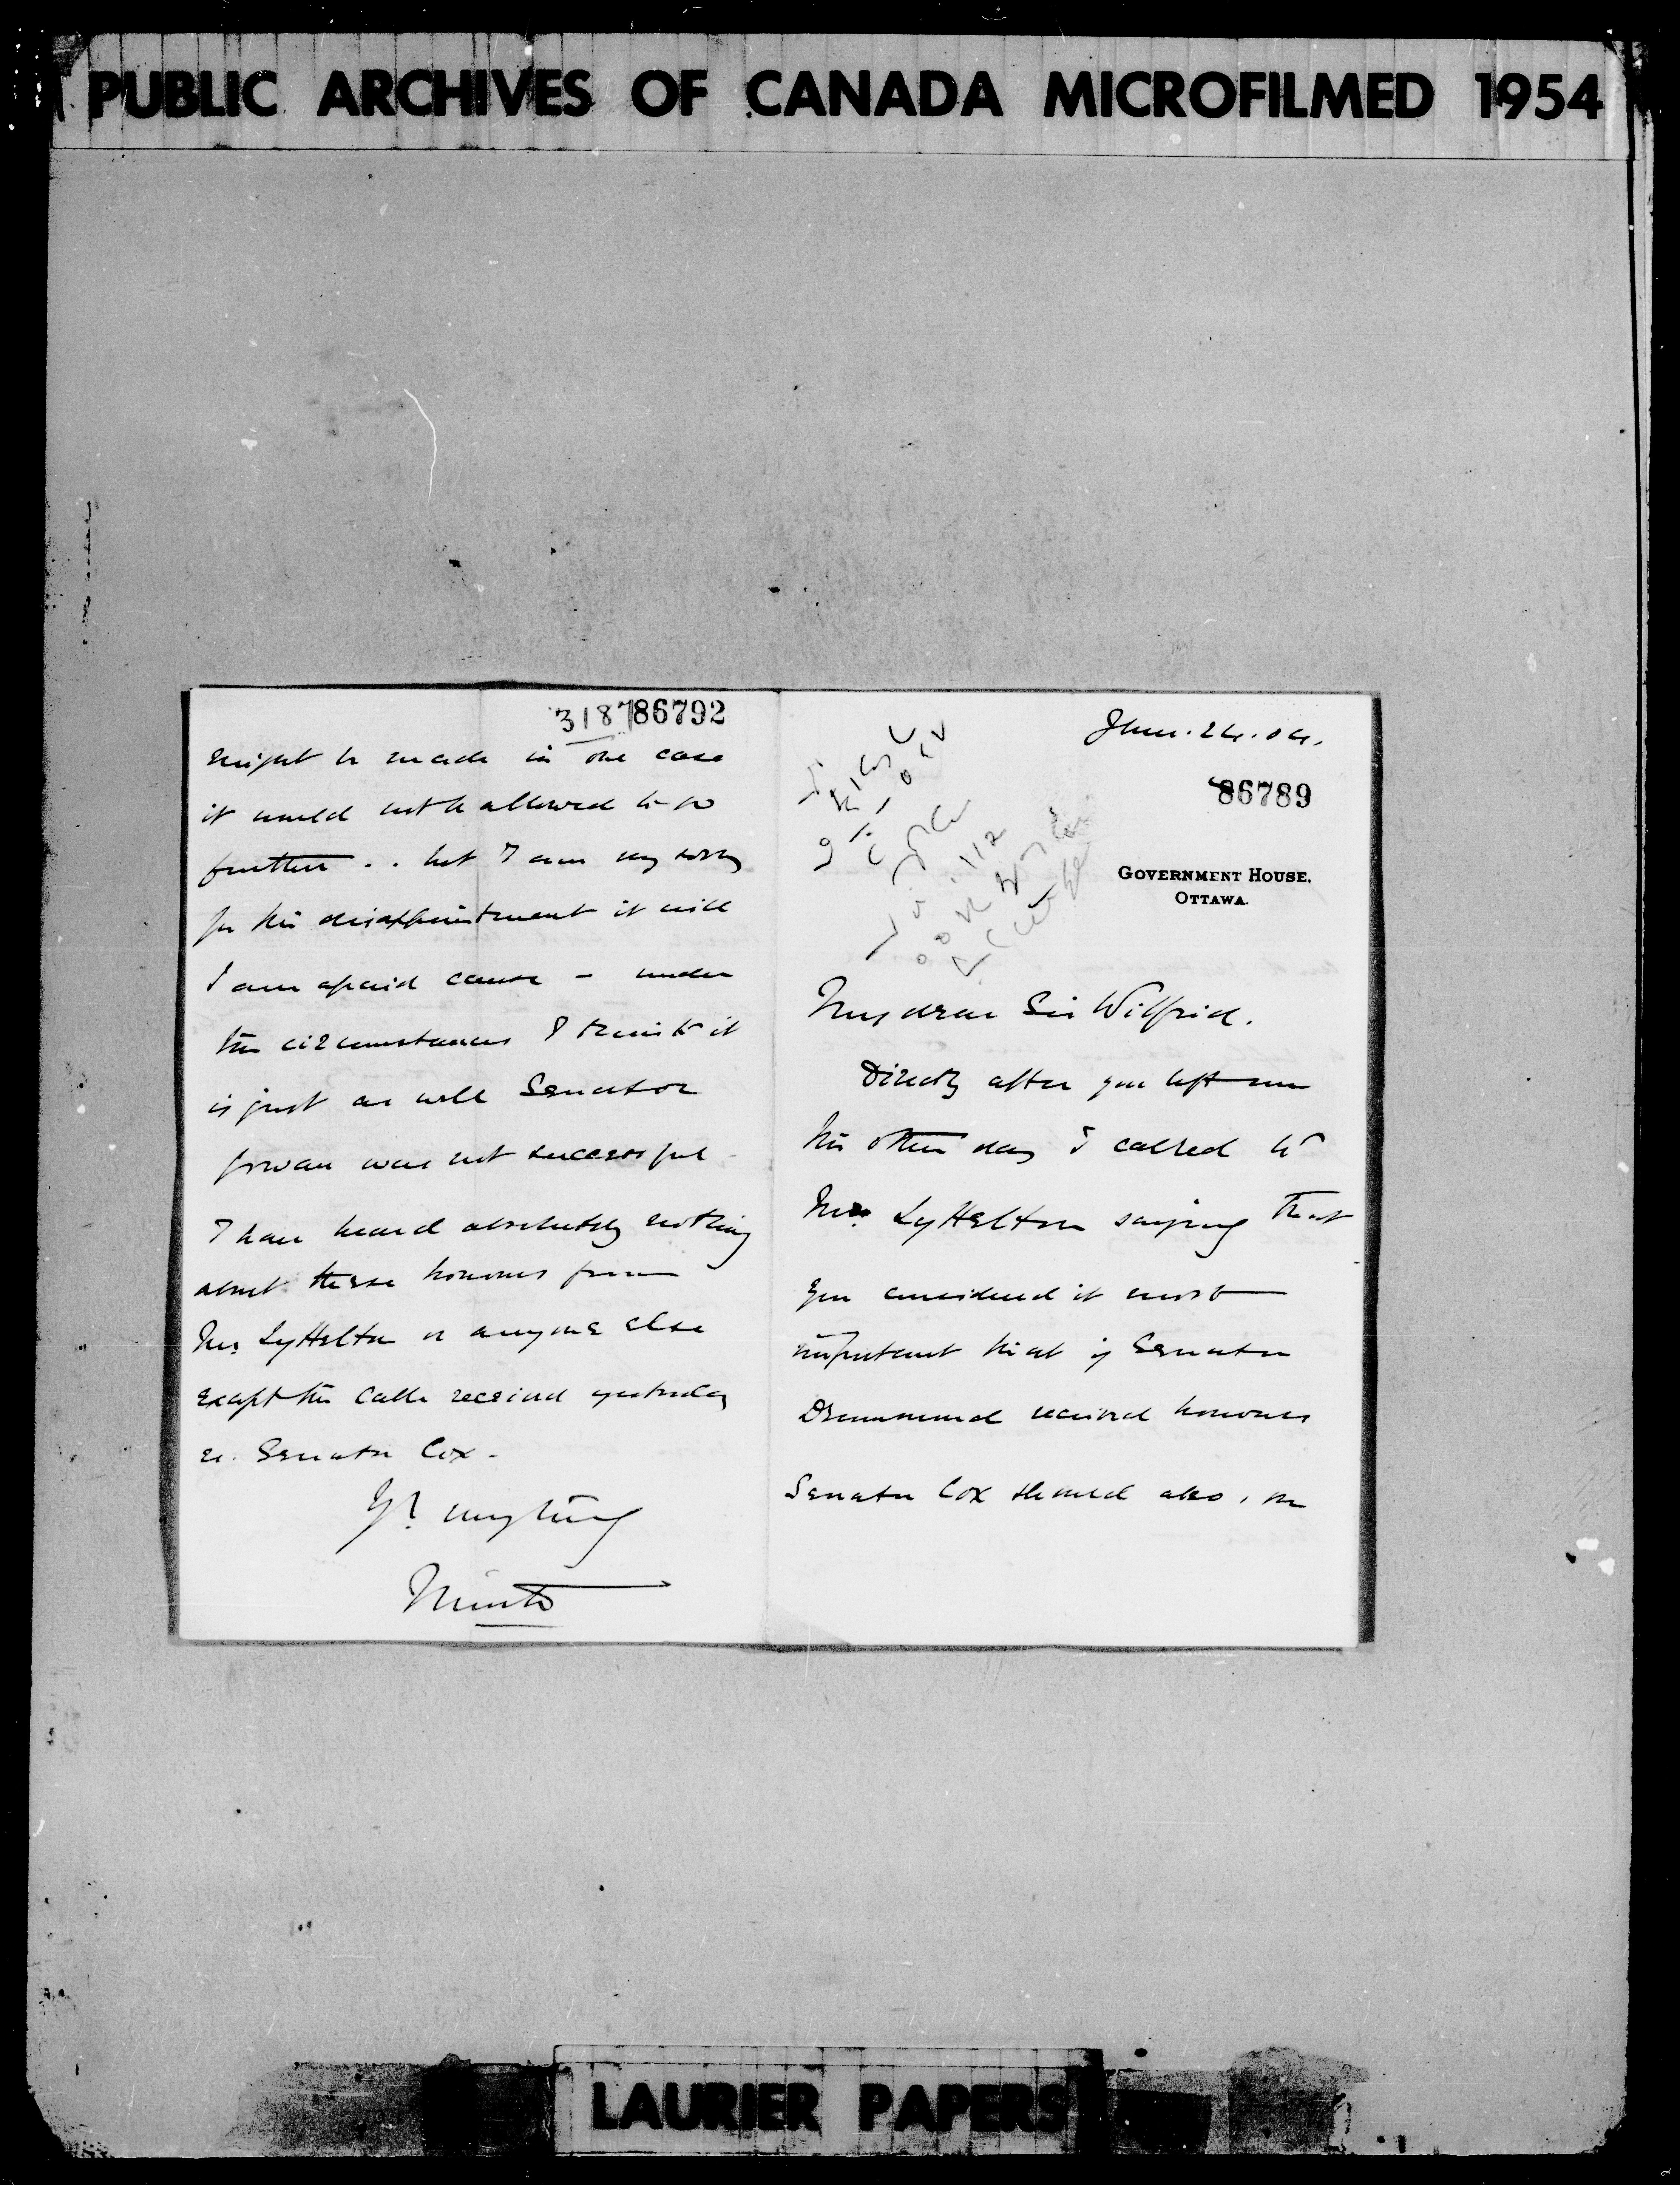 PUBLIC ARCHIVES OF CANADA MICROFILMED 1954
318786792
might be made in one case
it would not be allowed to go
further .. but I am very sorry
for the disappointment it will
I am afraid cause - under
the circumstances I think it
is just as well Senator
Gowan was not successful
I have heard absolutely nothing
about these honours from
Mr. Lyttelton or anyone else
except the cable received yesterday
re. Senator Cox -
Yrs. very truly
Minto
June. 24. 04.
86789
GOVERNMENT HOUSE,
OTTAWA.
My dear Sir Wilfrid.
Directly after you left me
the other day I cabled to
Mr. Lyttelton saying that
you considered it most
important that if Senator
Drummond received honours
Senator Cox should also, or
LAURIER PAPERS